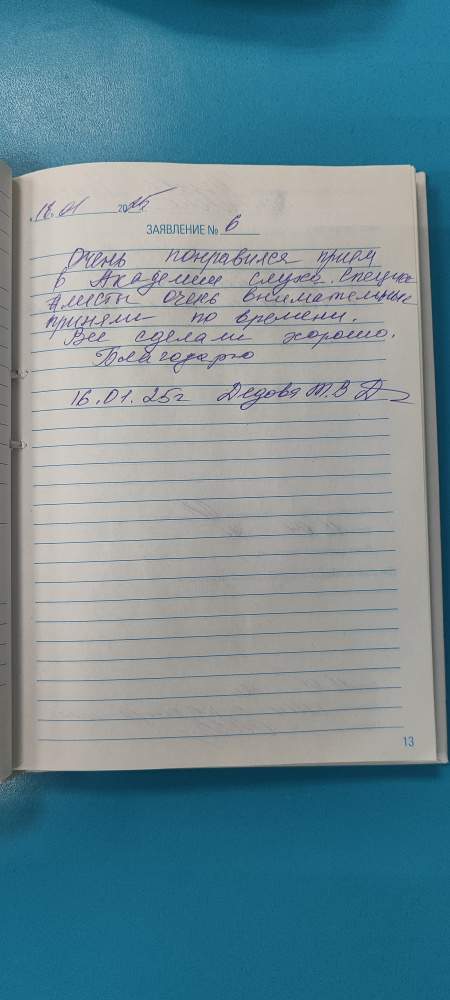 16.01 2025
ЗАЯВЛЕНИЕ № 6
Очень понравился прием
в Академии слуха. Специа
листы очень внимательные
приняли по времени.
Все сделали хорошо.
Благодарю
16.01.25г Дедова Т.В
13